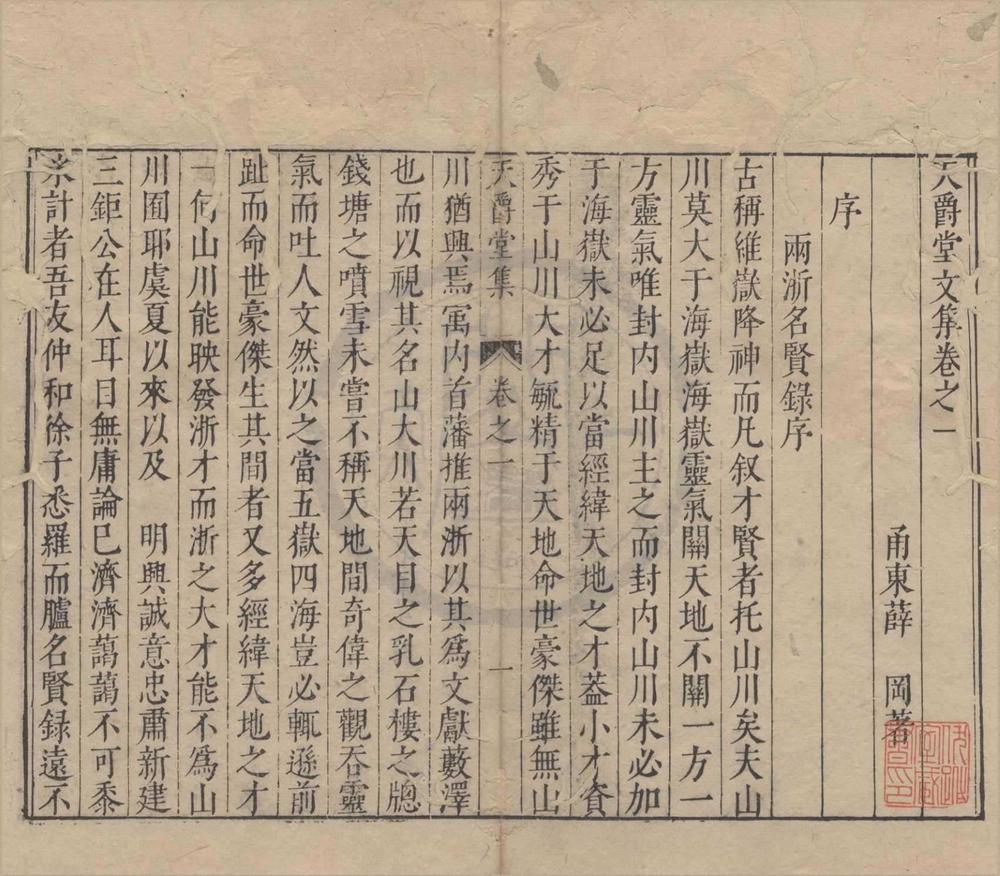 天爵堂文集卷之一
甬東薛　岡著
序
兩浙名賢錄序
古稱維嶽降神而凡叙才賢者托山川矣夫山
川莫大于海嶽海嶽靈氣關天地不關一方一
方靈氣唯封内山川主之而封内山川未必加
于海嶽未必足以當經緯天地之才葢小才資
秀于山川大才毓精于天地命世豪傑雖無山
天爵堂集　卷之一　一
川猶興焉寓内首藩推兩浙以其爲文獻藪澤
也而以視其名山大川若天目之乳石樓之牕
錢塘之噴雪未嘗不稱天地間奇偉之觀吞靈
氣而吐人文然以之當五嶽四海豈必輒遜前
趾而命世豪傑生其間者又多經緯天地之才
一何山川能映發浙才而浙之大才能不爲山
川囿耶虞夏以來以及　明興誠意忠肅新建
三鉅公在人耳目無庸論巳濟濟藹藹不可黍
絫計者吾友仲和徐子悉羅而臚名賢録遠不